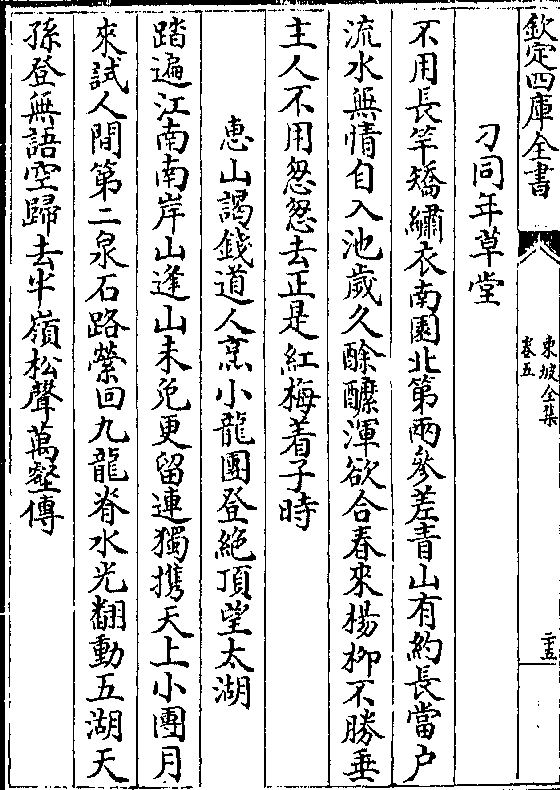 欽定四庫全書
東坡全集
卷五
二十五
刁同年草堂
不用長竿矯繡衣南園北第兩參差青山有約長當户
流水無情自入池歲久酴醿渾欲合春來楊柳不勝垂
主人不用怱怱去正是紅梅着子時
惠山謁錢道人烹小龍團登絶頂望太湖
踏遍江南南岸山逢山未免更留連獨攜天上小團月
來試人間第二泉石路縈回九龍脊水光翻動五湖天
孫登無語空歸去半嶺松聲萬壑傳